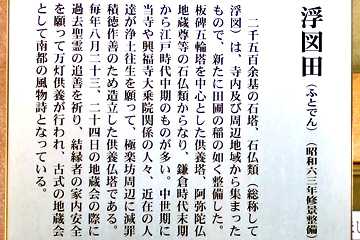 浮図田(ふとでん)(昭和六三年修景整備)
二千五百余基の石塔、石仏類(総称して
浮図)は、寺内及び周辺地域から集まった
もので、新たに田圃の稲の如く整備した。
板碑五輪塔を中心とした供養塔、阿弥陀仏
地蔵尊等の石仏類からなり、鎌倉時代末期
から江戸時代中期のものが多い。中世期に
当寺や興福寺大乗院関係の人々、近在の人
達が浄土往生を願って、極楽坊周辺に減罪
積徳作善のため造立した供養仏塔である。
毎年八月二十三、二十四日の地蔵会の際に
過去聖霊の追善を祈り、結縁者の家内安全
を願って万灯供養が行われ、古式の地蔵会
として南都の風物詩となっている。